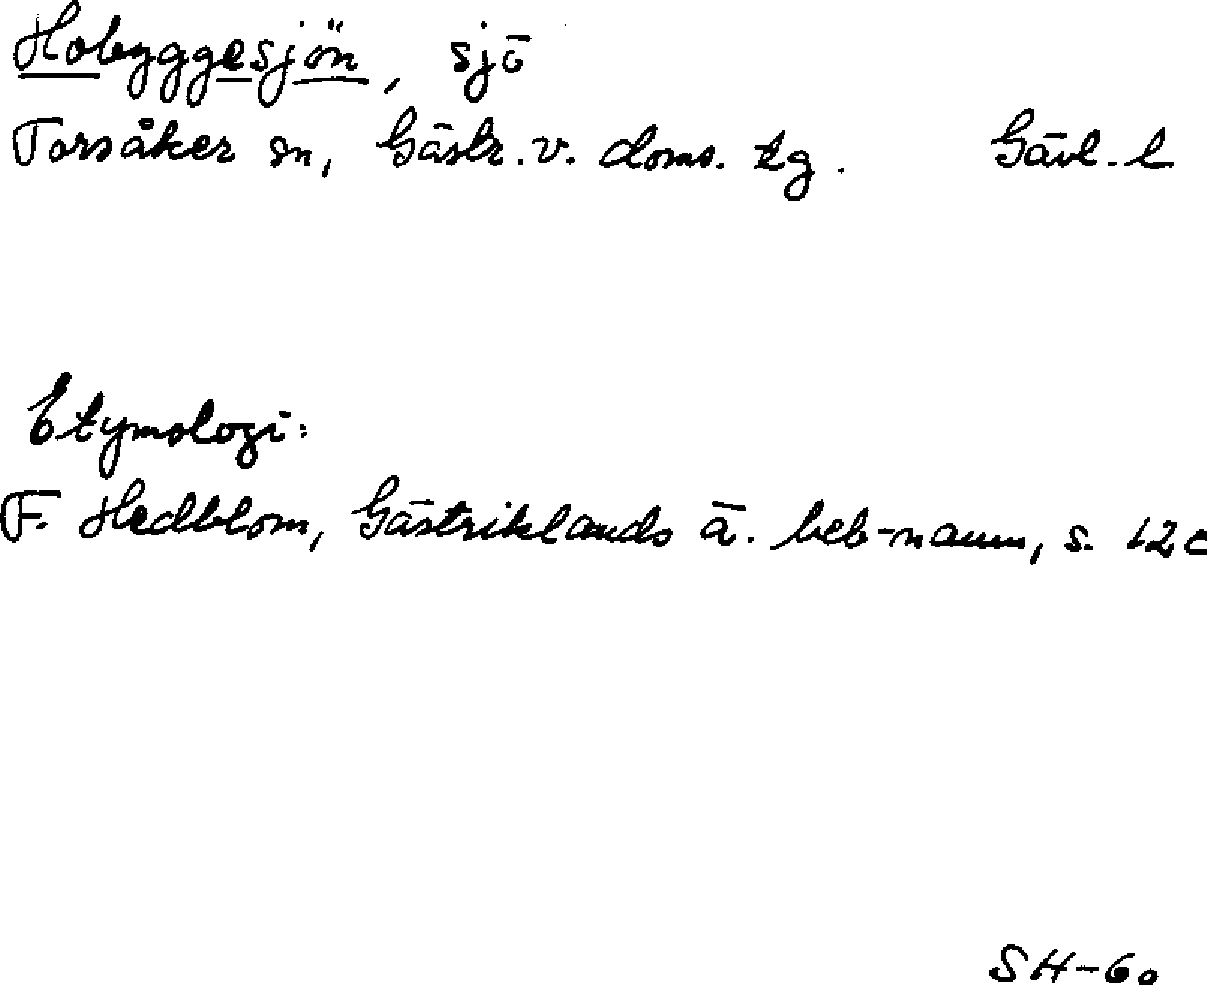 Hobyggesjön, sjö
Torsåker sn, Gästr. v. doms. tg. Gävl. l
Etymologi:
F. Hedblom, Gästriklands ä. beb-namn, s. 12
SH-60